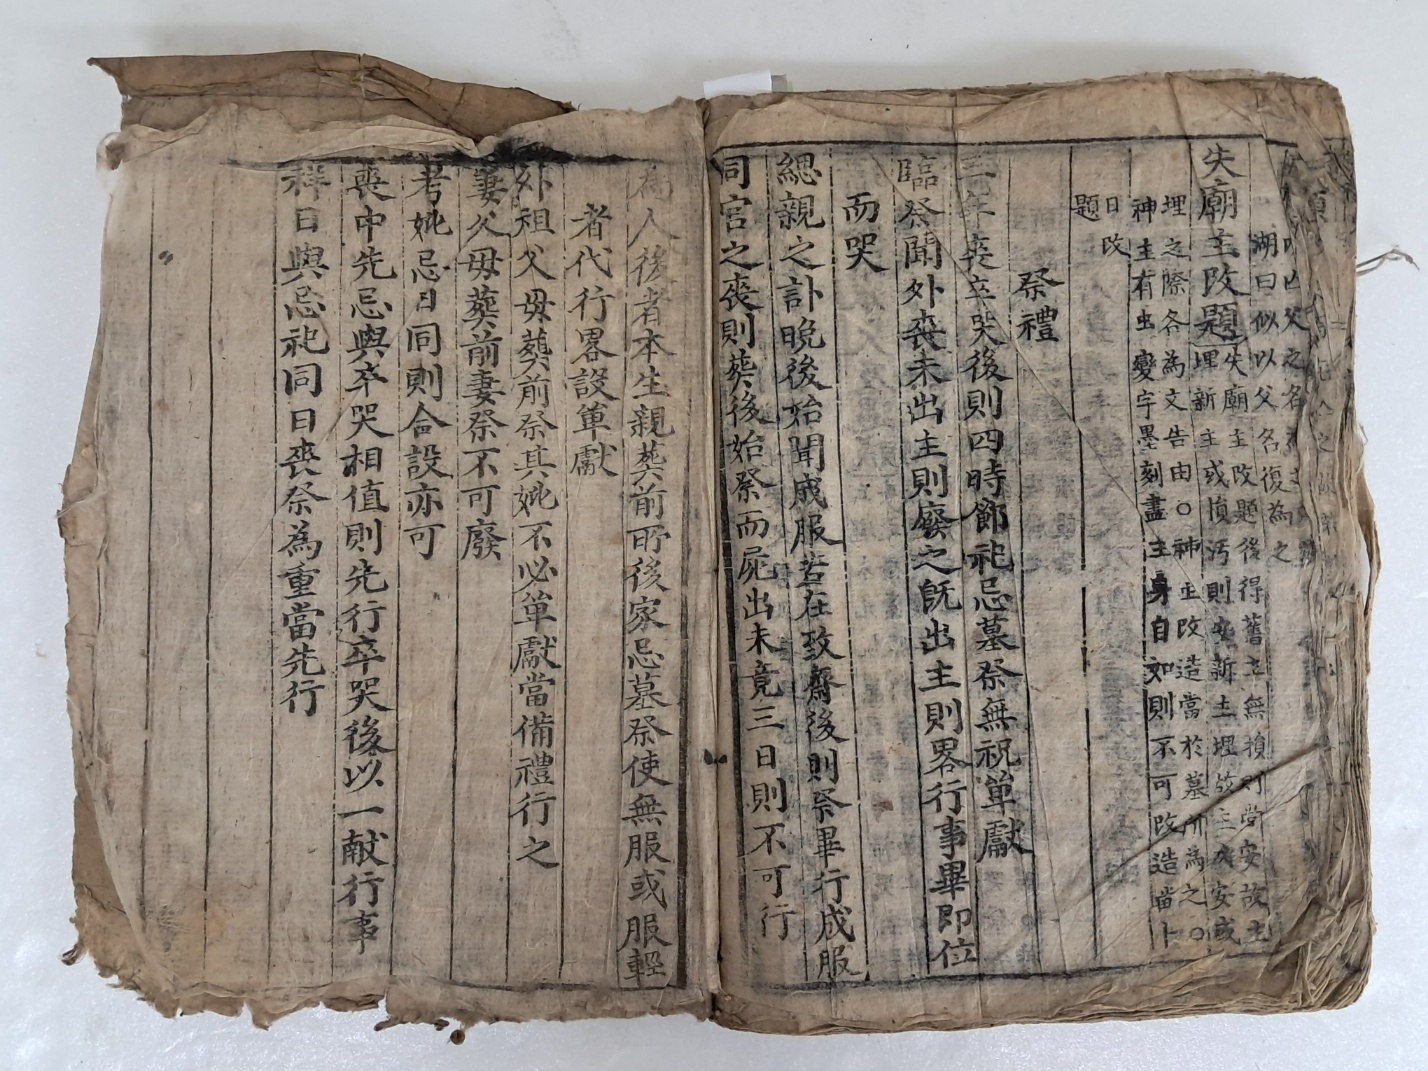 湖曰似以父名復為之
失廟主改題
失廟主改題後得舊主無損則當安故主
埋新主或損汚則安新主埋故主
埋之際各為文告由○神主改造當於墓所為之○
神主有虫變字墨刻盡主身自如則不可改造當卜
日改
題
祭禮
三年喪卒哭後則四時節祀忌墓祭無祝單獻
臨祭聞外喪未出主則廢之旣出主則畧行事畢即位
而哭
緦親之訃晩後始聞成服若在致齋後則祭畢行成服
同宮之喪則葬後始祭而屍出未竟三日則不可行
為人後者本生親葬前所後家忌墓祭使無服或服輕
者代行畧設單獻
外祖父母葬前祭其妣不必單獻當備禮行之
妻父母葬前妻祭不可廢
考妣忌日同則合設亦可
喪中先忌與卒哭相値則先行卒哭後以一献行事
祥日與忌祀同日喪祭為重當先行